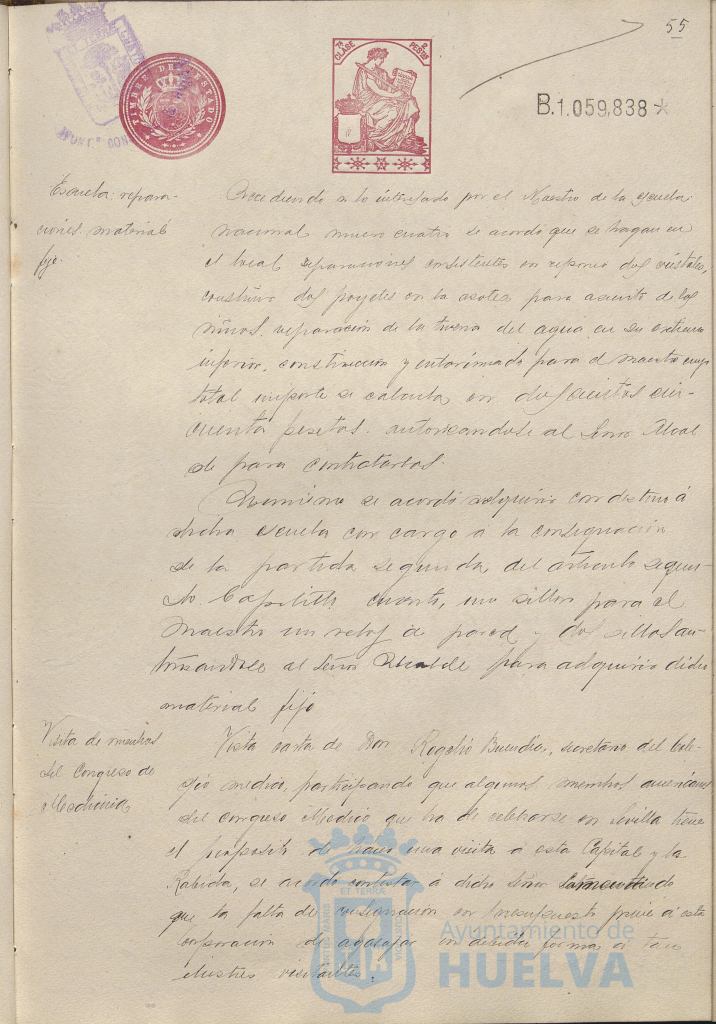 55
TIMBRE DEL ESTADO
7ª CLASE 2 PESETAS
B.1.059,838*
Escuela: repara-
ciones material
fijo.
Accediendo a lo interesado por el Maestro de la escuela
nacional número cuatro se acordó que se hagan en
el local reparaciones consistentes en reponer dos cristales,
construir dos poyetes en la azotea para asiento de los
niños, reparación de la tubería del agua en su extremo
inferior, construcción y entarimado para el maestro cuyo
total importe se calcula en doscientas cin-
cuenta pesetas, autorizandose al Señor Alcal
de para contratarlas.
Asimismo se acordó adquirir con destino á
dicha escuela con cargo a la consignación
de la partida segunda del artículo segun-
do Capítulo cuarto, un sillón para el
Maestro un reloj de pared y dos sillas au-
torizandose al Señor Alcalde para adquirir dicho
material fijo
Visita de miembros
del Congreso de
Medicina
Vista carta de Don Rogelio Buendia, secretario del Cole-
gio medico, participando que algunos miembros americanos
del congreso Medico que ha de celebrarse en Sevilla tienen
el proposito de hacer una visita a esta Capital y la
Rabida, se acordó contestar á dicho Señor lamentando
que la falta de consignación en presupuesto prive á esta
Corporación de agasajar en debida forma á tan
ilustres visitantes.
Ayuntamiento de
HUELVA